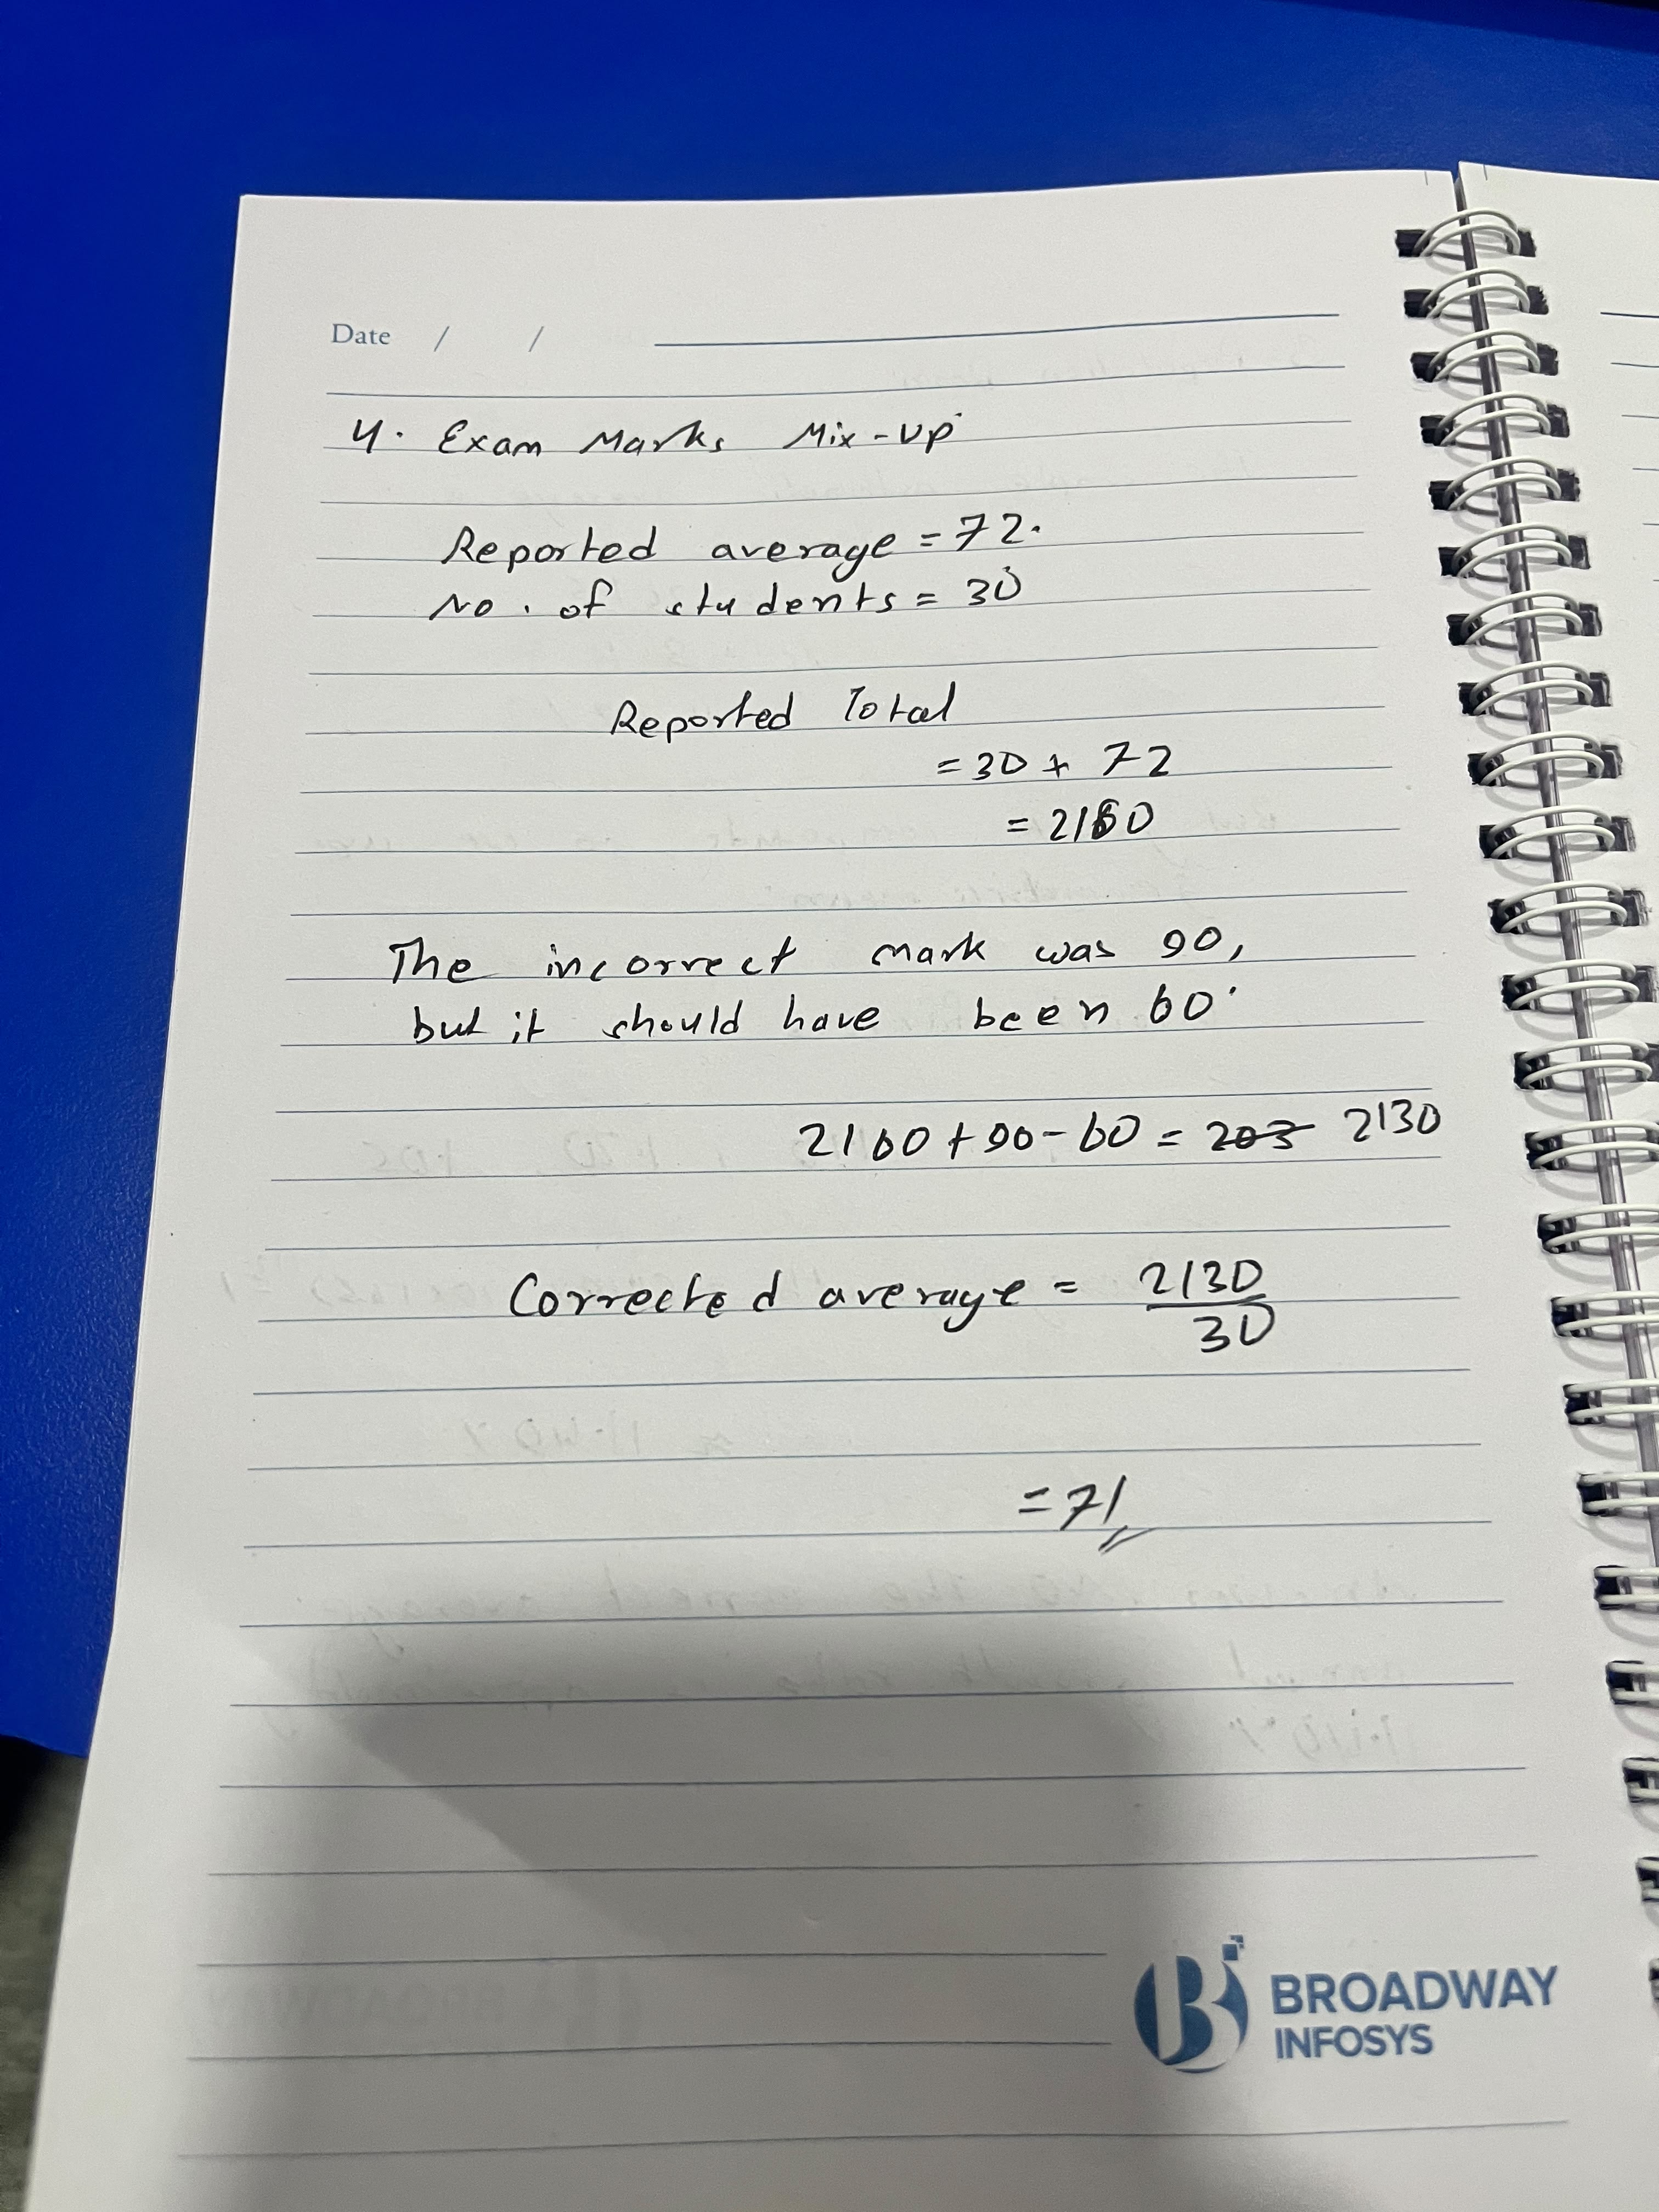 Date / /
4. Exam Marks Mix-up
Reported average = 72.
No. of students = 30
Reported Total
= 30 × 72
= 2160
The incorrect mark was 90,
but it should have been 60.
2160 + 90 - 60 = 203 2130
Corrected average = 2130
30
= 71
BROADWAY
INFOSYS